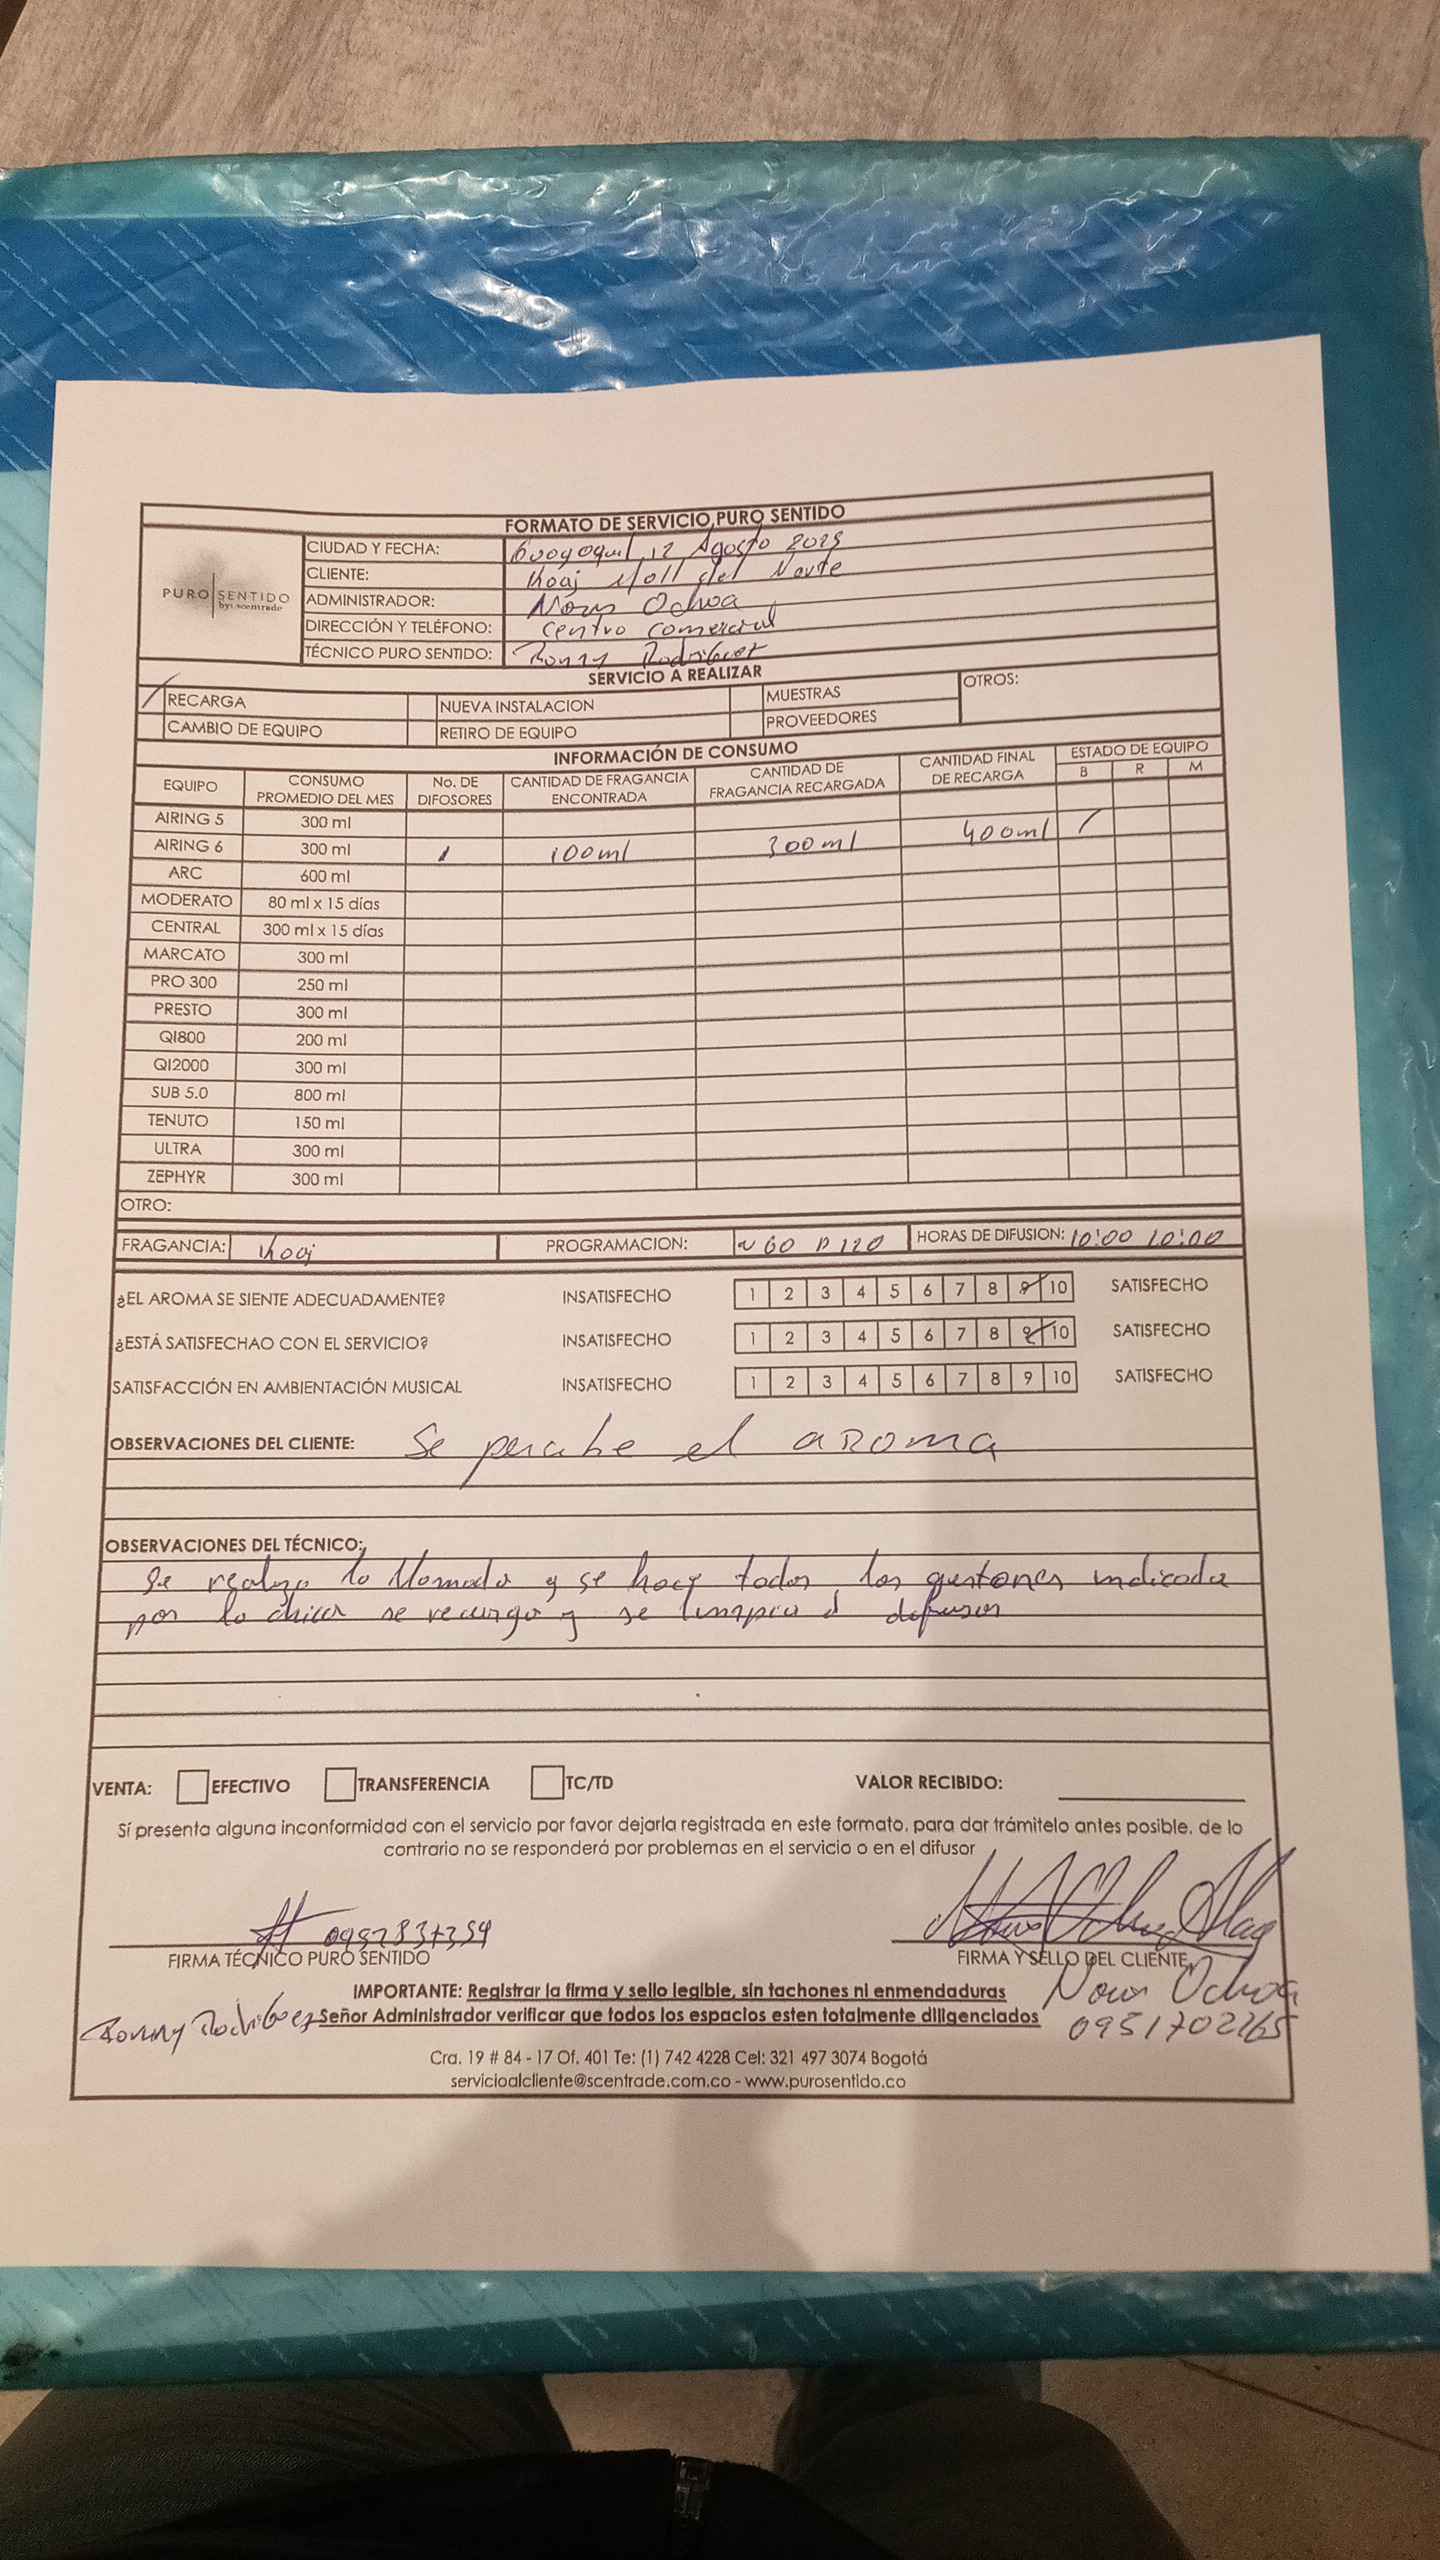 FORMATO DE SERVICIO PURO SENTIDO
PURO SENTIDO
by: scentrade
CIUDAD Y FECHA: Guayaquil, 12 Agosto 2025
CLIENTE: Koaj Mall del Norte
ADMINISTRADOR: Ochoa
DIRECCIÓN Y TELÉFONO: Centro Comercial
TÉCNICO PURO SENTIDO: Ronny Rodriguez
SERVICIO A REALIZAR
RECARGA NUEVA INSTALACION MUESTRAS OTROS:
CAMBIO DE EQUIPO RETIRO DE EQUIPO PROVEEDORES
INFORMACIÓN DE CONSUMO
EQUIPO CONSUMO PROMEDIO DEL MES No. DE DIFOSORES CANTIDAD DE FRAGANCIA ENCONTRADA CANTIDAD DE FRAGANCIA RECARGADA CANTIDAD FINAL DE RECARGA ESTADO DE EQUIPO B R M
AIRING 5 300 ml
AIRING 6 300 ml 1 100ml 300ml 400ml /
ARC 600 ml
MODERATO 80 ml x 15 días
CENTRAL 300 ml x 15 días
MARCATO 300 ml
PRO 300 250 ml
PRESTO 300 ml
QI800 200 ml
QI2000 300 ml
SUB 5.0 800 ml
TENUTO 150 ml
ULTRA 300 ml
ZEPHYR 300 ml
OTRO:
FRAGANCIA: Koaj PROGRAMACION: 60 P 120 HORAS DE DIFUSION: 10:00 10:00
¿EL AROMA SE SIENTE ADECUADAMENTE? INSATISFECHO 1 2 3 4 5 6 7 8 9 10 SATISFECHO
¿ESTÁ SATISFECHAO CON EL SERVICIO? INSATISFECHO 1 2 3 4 5 6 7 8 9 10 SATISFECHO
SATISFACCIÓN EN AMBIENTACIÓN MUSICAL INSATISFECHO 1 2 3 4 5 6 7 8 9 10 SATISFECHO
OBSERVACIONES DEL CLIENTE: Se percibe el aroma
OBSERVACIONES DEL TÉCNICO:
Se realizo la llamada y se hace todos los gestones indicada
por la chica se recargo y se limpio el difusor
VENTA: EFECTIVO TRANSFERENCIA TC/TD VALOR RECIBIDO:
Sí presenta alguna inconformidad con el servicio por favor dejarla registrada en este formato, para dar trámitelo antes posible, de lo
contrario no se responderá por problemas en el servicio o en el difusor
FIRMA TÉCNICO PURO SENTIDO FIRMA Y SELLO DEL CLIENTE
IMPORTANTE: Registrar la firma y sello legible, sin tachones ni enmendaduras
Ochoa
Ronny Rodriguez Señor Administrador verificar que todos los espacios esten totalmente diligenciados
Cra. 19 # 84 - 17 Of. 401 Te: (1) 742 4228 Cel: 321 497 3074 Bogotá
servicioalcliente@scentrade.com.co - www.purosentido.co